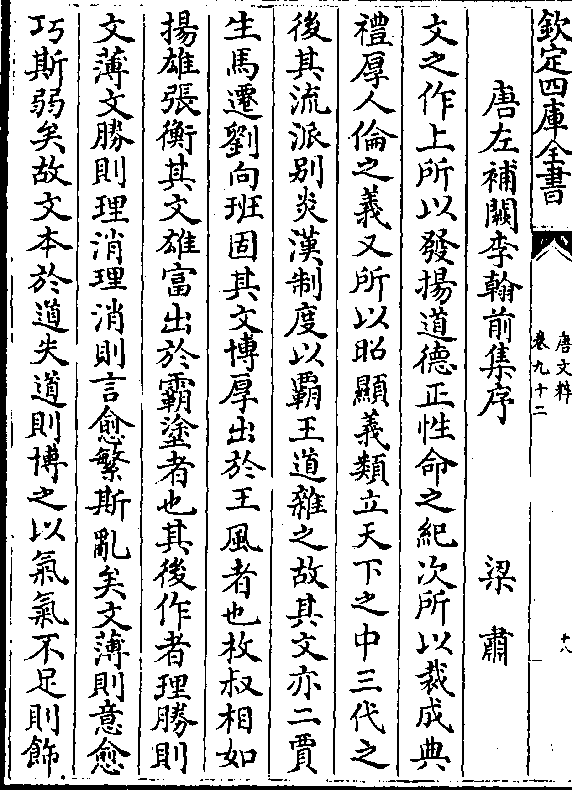 欽定四庫全書
唐文粹
卷九十二
十八
唐左補闕李翰前集序 梁肅
文之作上所以發揚道德正性命之紀次所以裁成典
禮厚人倫之義又所以昭顯義類立天下之中三代之
後其流派别炎漢制度以霸王道雜之故其文亦二賈
生馬遷劉向班固其文博厚出於王風者也枚叔相如
揚雄張衡其文雄富出於霸塗者也其後作者理勝則
文薄文勝則理消理消則言愈繁斯亂矣文薄則意愈
巧斯弱矣故文本於道失道則博之以氣氣不足則飾